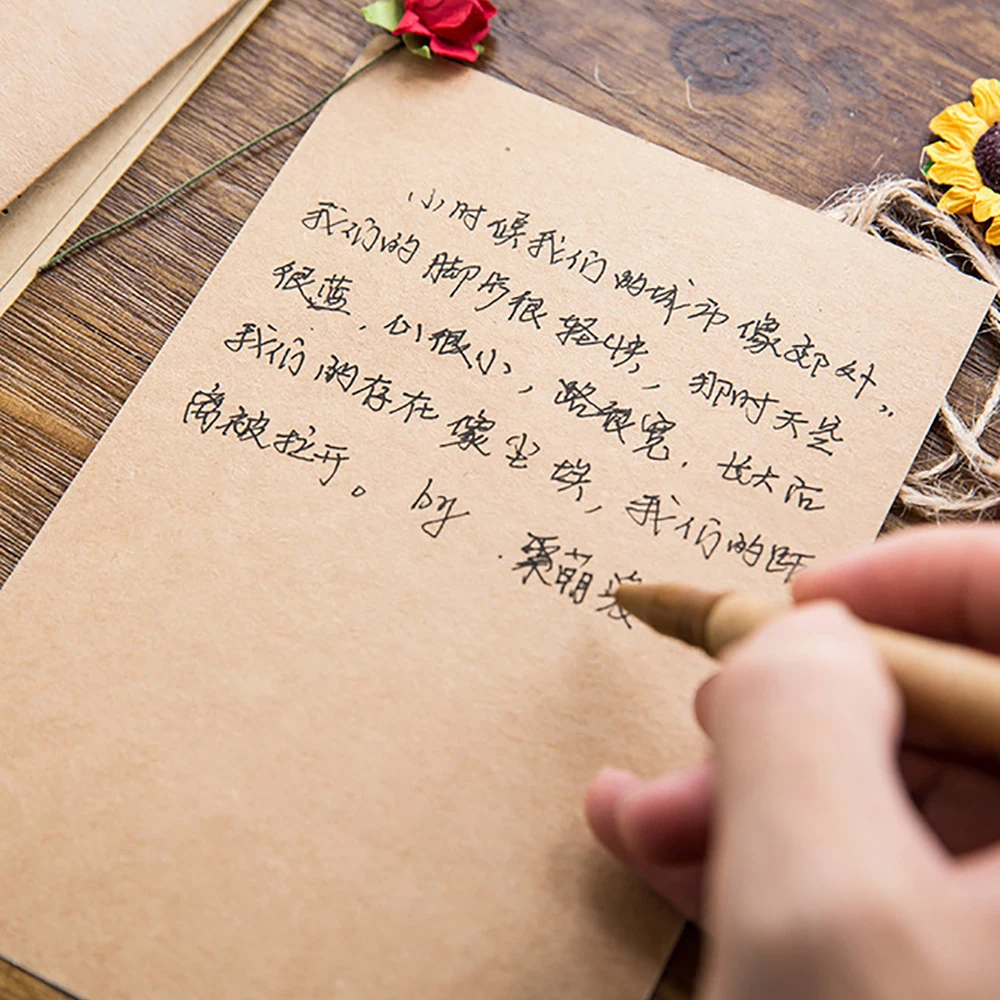 小时候我们的城市像郊外,
我们的脚步很轻快,那时天些
很蓝,心很小,路很宽.长大后
我们的存在像尘埃,我们的距
离被拉开。by
.栗萌裟